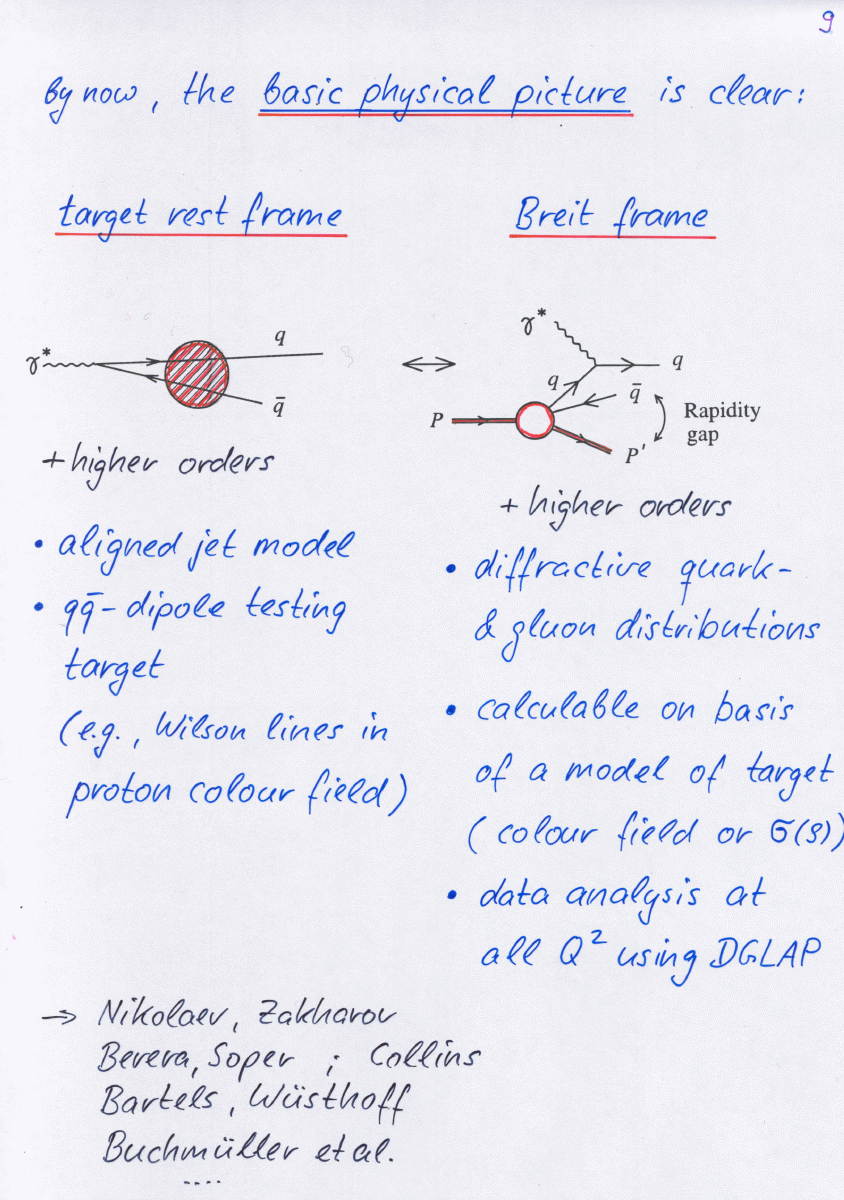 9
By now, the basic physical picture is clear:
target rest frame
γ*
q
q̄
+ higher orders
• aligned jet model
• qq̄-dipole testing
target
(e.g., Wilson lines in
proton colour field)
↔
Breit frame
γ*
q
q
q̄
P
P'
Rapidity
gap
+ higher orders
• diffractive quark-
& gluon distributions
• calculable on basis
of a model of target
(colour field or σ(ρ))
• data analysis at
all Q² using DGLAP
→ Nikolaev, Zakharov
Berera, Soper ; Collins
Bartels, Wüsthoff
Buchmüller et al.
....